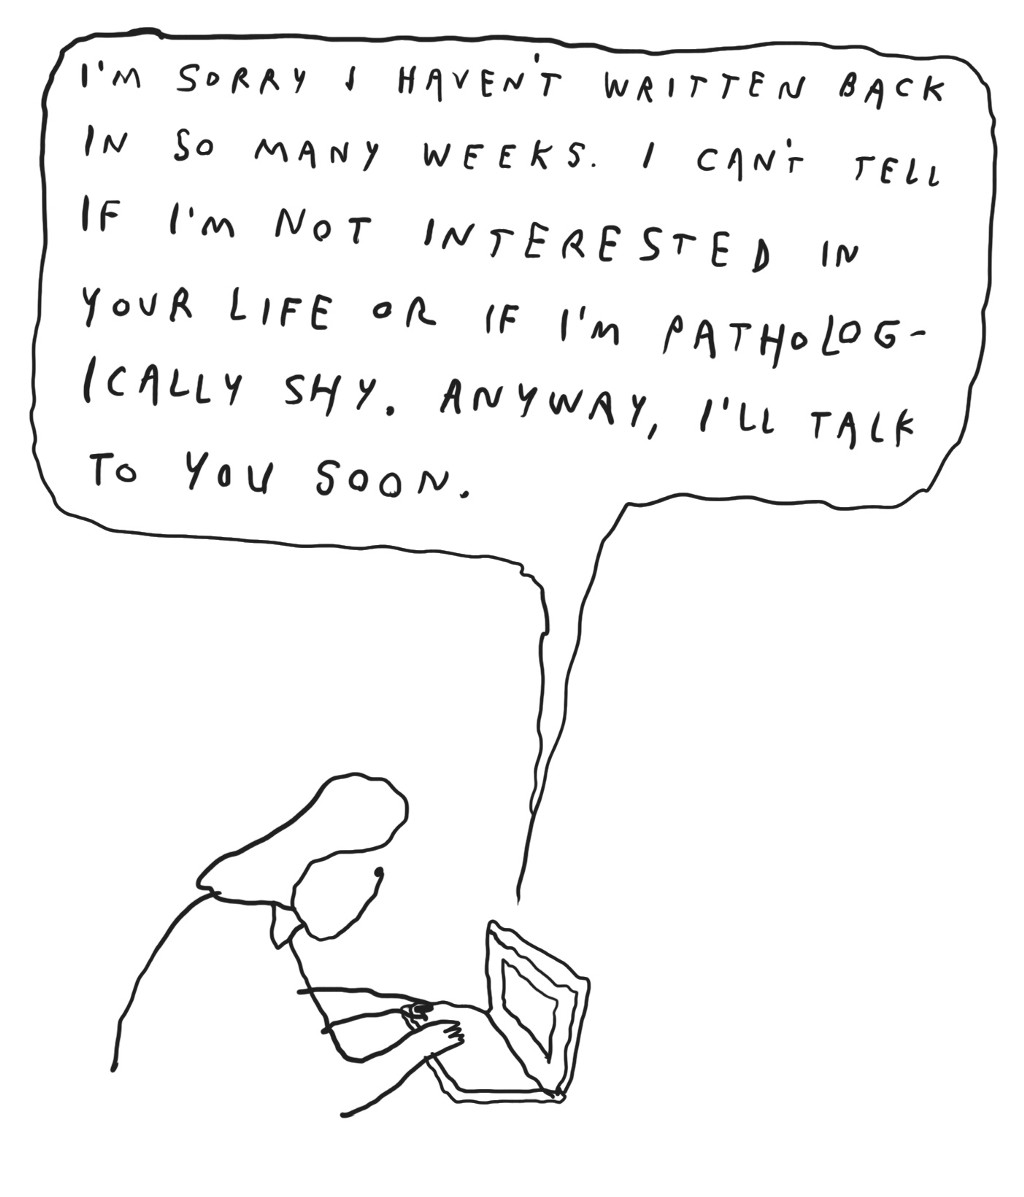 I'M SORRY I HAVEN'T WRITTEN BACK
IN SO MANY WEEKS. I CAN'T TELL
IF I'M NOT INTERESTED IN
YOUR LIFE OR IF I'M PATHOLOG-
ICALLY SHY. ANYWAY, I'LL TALK
TO YOU SOON.